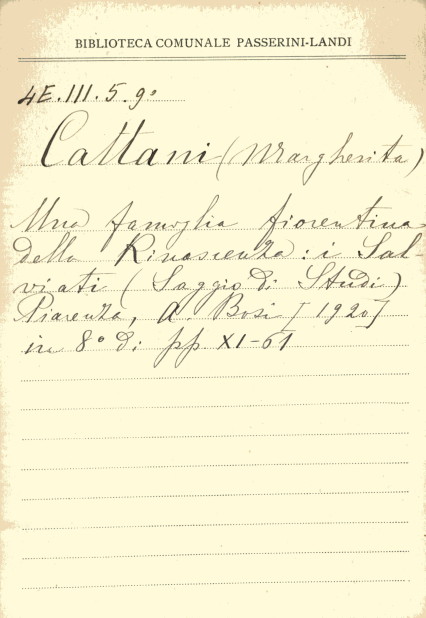 BIBLIOTECA COMUNALE PASSERINI-LANDI
4E.III.5.9°
Cattani (Margherita)
Una famiglia fiorentina
della Rinascenza: i Sal-
viati (Saggio di Studi)
Piacenza, A. Bosi [1920]
in 8° di pp XI-61